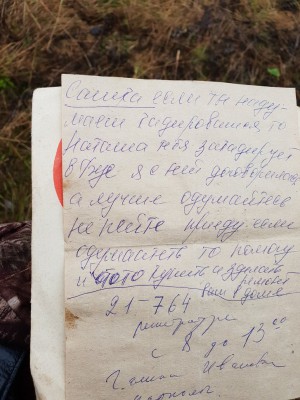 Сашка если ты наду-
маеш кодироваться, то
Наташа тебя закодирует
в Гусе я с ней договорилась
а лучше одумайтесь
не пейте приеду если
одумаетесь то помогу
и что то купить и зделать
ремонт
вам в доме
21-764
регистратура
с 8 до 13 00
Галина Ивановна